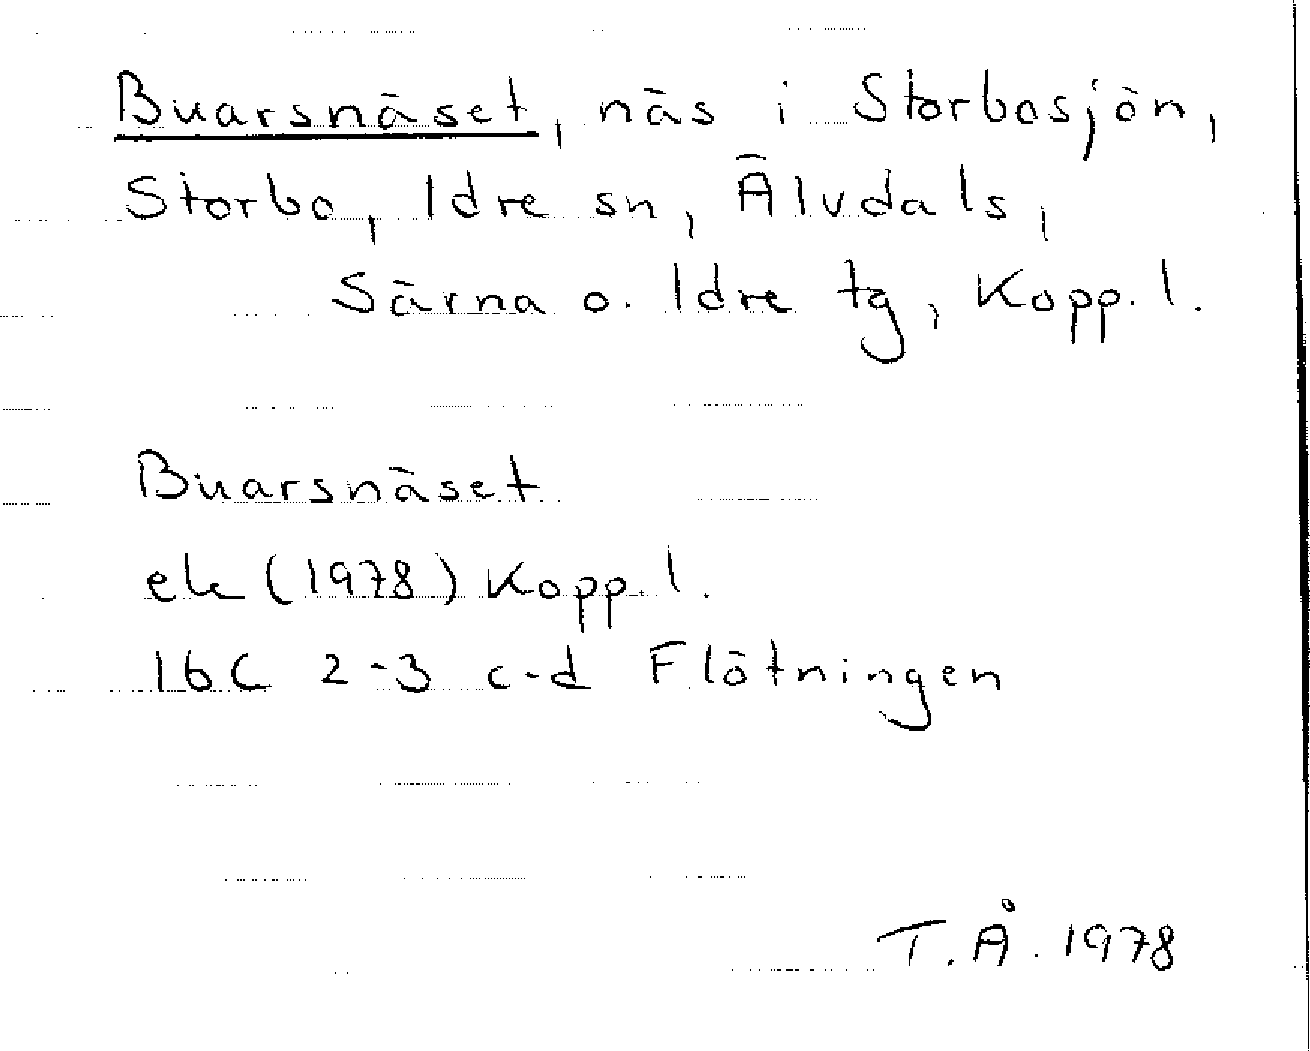 Buarsnäset, näs i Storbosjön,
Storbo, Idre sn, Älvdals,
Särna o. Idre tg, Kopp. l.
Buarsnäset
ek (1978) Kopp. l.
16C 2-3 c-d Flötningen
T.Å. 1978